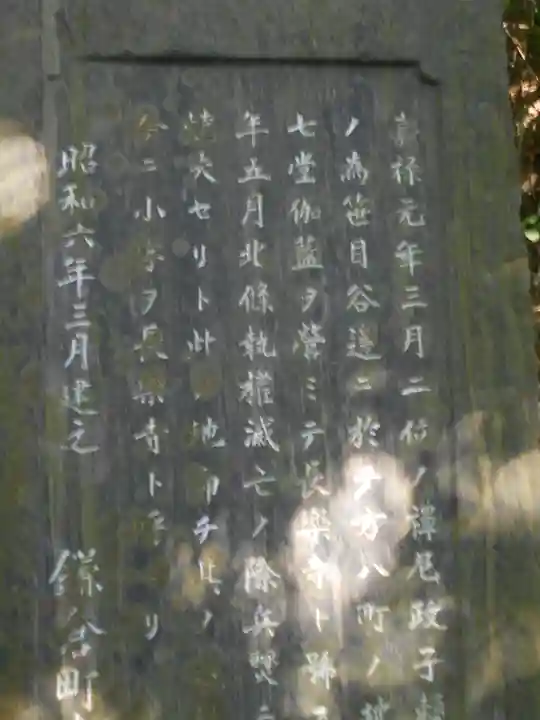 嘉祿元年三月二位ノ禪尼政子
ノ為笹目谷邉ニ於テ方八町ノ地
七堂伽藍ヲ營ミテ長樂寺ト號
年五月北條執權滅亡ノ際兵燹ニ
燒失セリト此ノ地即チ其ノ
今ニ小字ヲ長樂寺ト呼ヘリ
昭和六年三月建之 鎌倉町